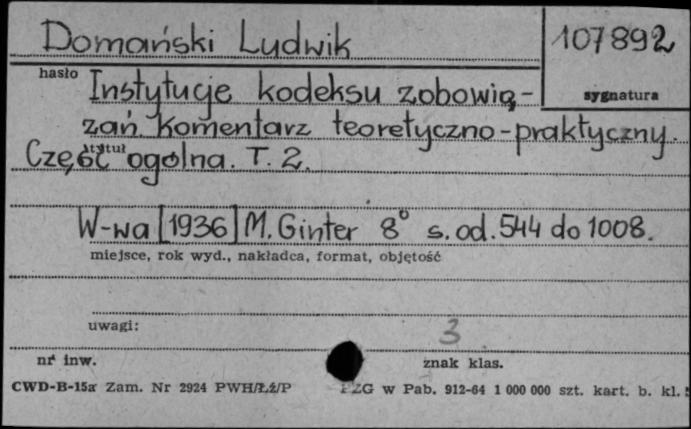 Domański Ludwik
107892
hasło
sygnatura
Instytucje kodeksu zobowią-
zań Komentarz teoretyczno-praktyczny.
tytuł
Część ogólna. T. 2.
W-wa [1936] M. Ginter 8° s. od. 544 do 1008.
miejsce, rok wyd., nakładca, format, objętość
uwagi:
3
nr inw.
znak klas.
CWD-B-15a Zam. Nr 2924 PWH/Łź/P
PZG w Pab. 912-64 1 000 000 szt. kart. b. kl.